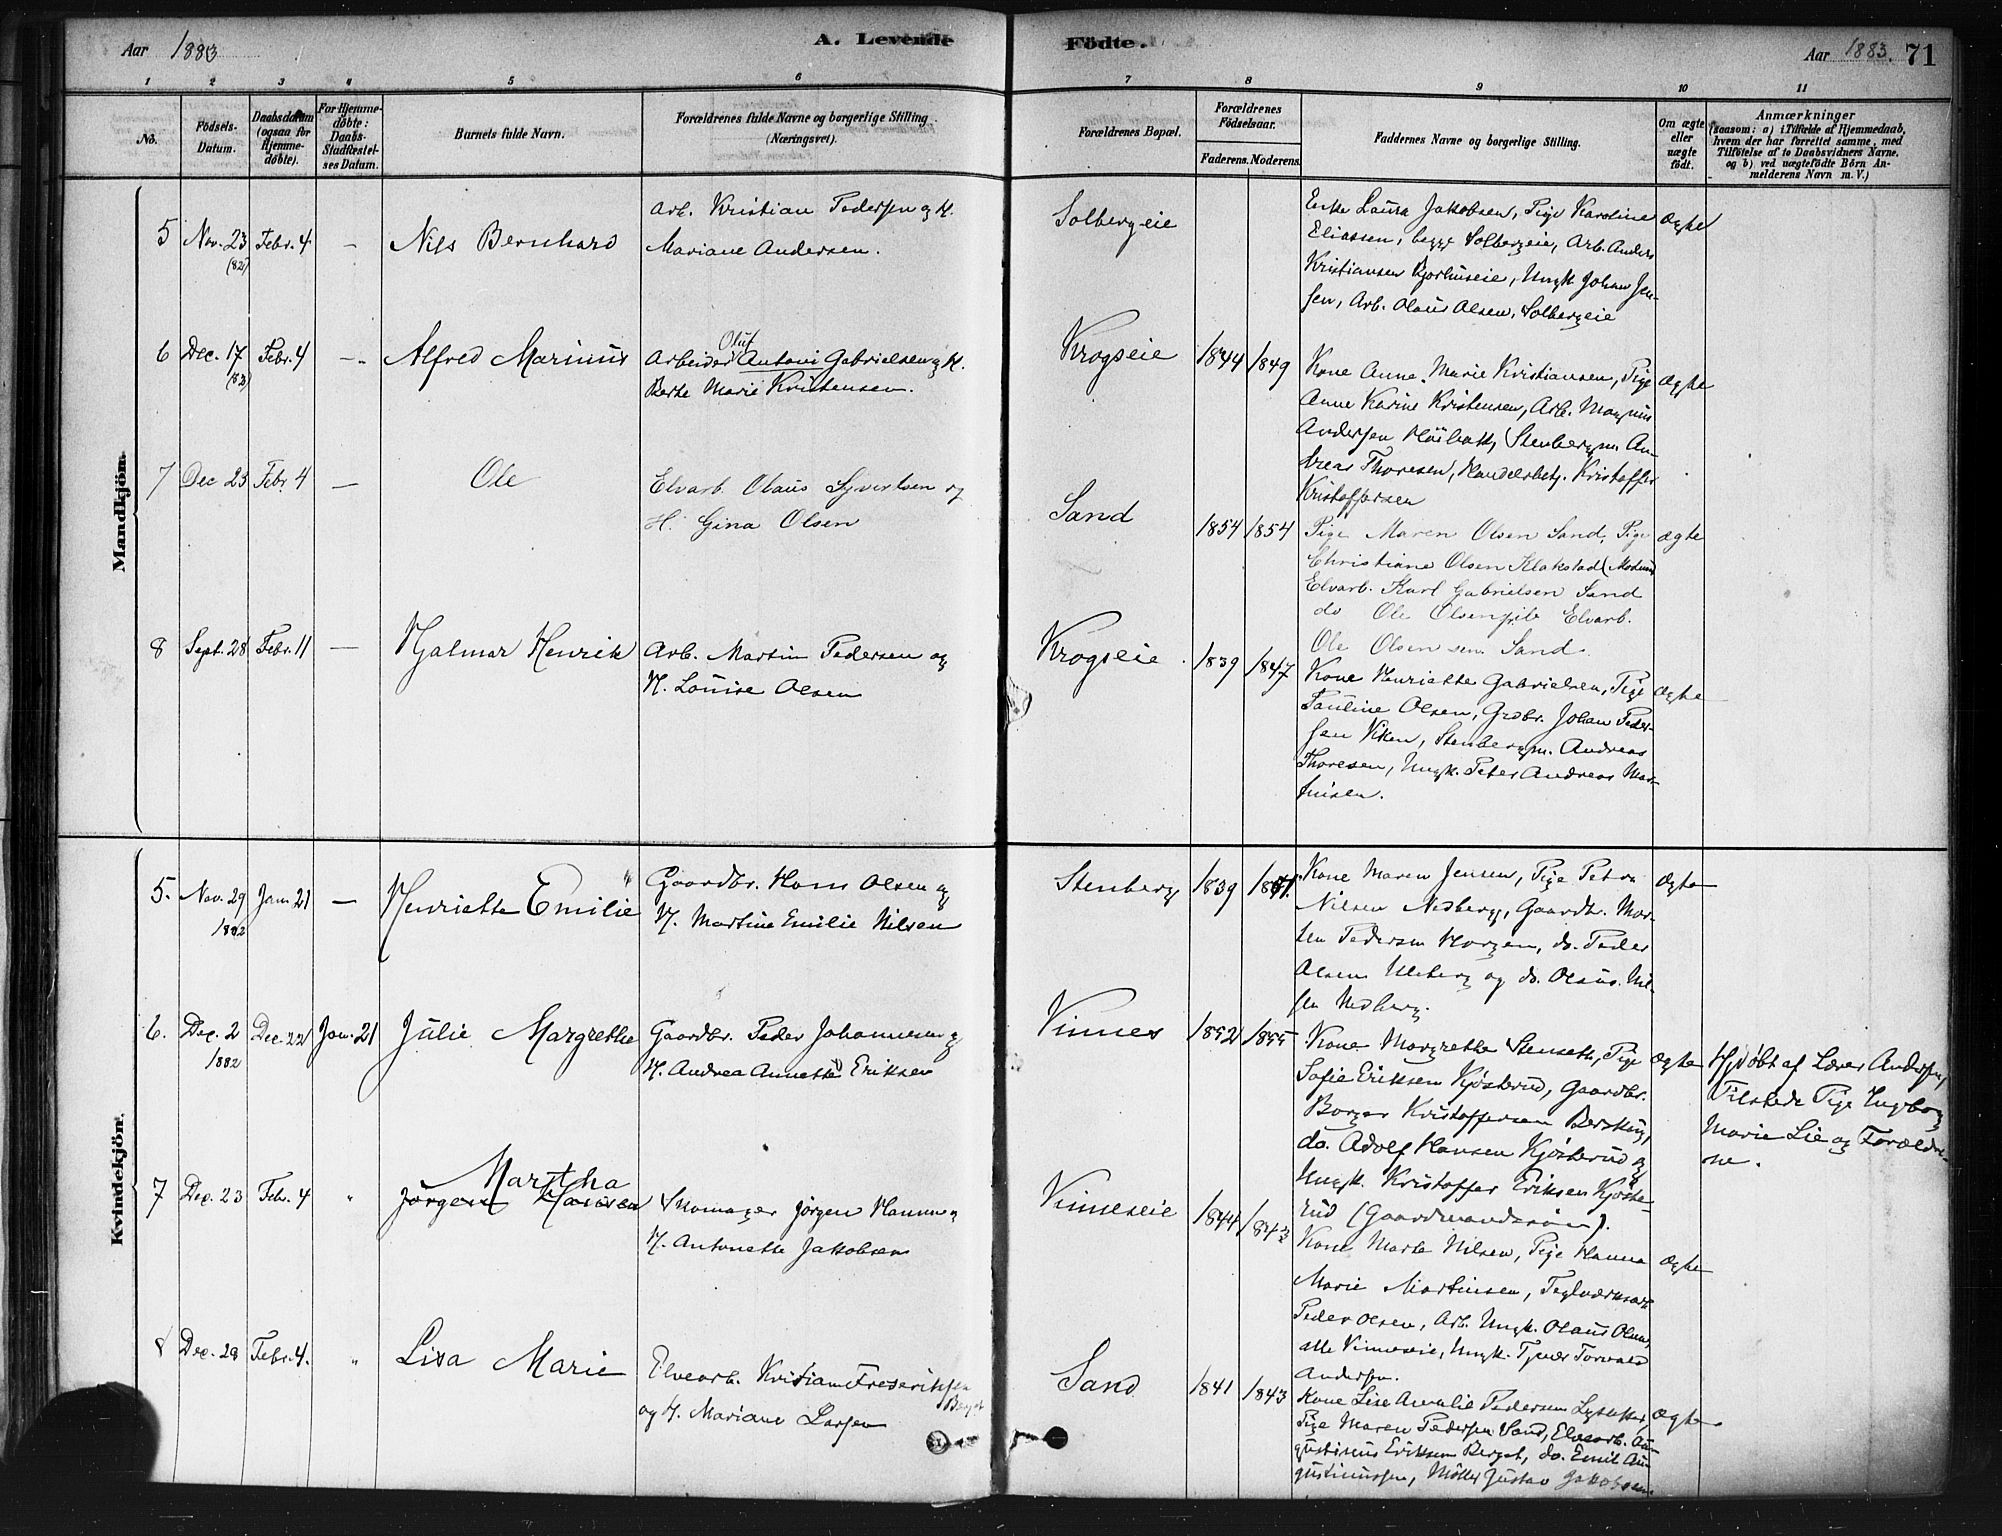 Aar 1883
A. Levende
Födte.
Aar 1883. 71
1 2 3 4 5 6 7 8 9 10 11
No.
Födsels-
Datum.
Daabsdatum
(ogsaa for
Hjemme-
döbte).
For Hjemme-
döbte:
Daabs-
Stadfæstel-
ses Datum.
Barnets fulde Navn.
Forældrenes fulde Navne og borgerlige Stilling
(Næringsvei).
Forældrenes Bopæl.
Forældrenes
Födselsaar.
Faderens. Moderens.
Faddernes Navne og borgerlige Stilling.
Om ægte
eller
uægte
født.
Anmærkninger
(saasom: a) i Tilfælde af Hjemmedaab,
hvem der har forrettet samme, med
Tilföielse af to Daabsvidners Navne,
og b) ved uægtefödte Börn An-
melderens Navn m. V.)
Mandkjön.
5 Nov. 23 Febr. 4 — Nils Bernhard
(82)
Arb. Kristian Pedersen og H.
Mariane Andersen.
Solbergeie
Enke Laura Jakobsen, Pige Karoline
Eliassen, begge Solbergeie, Arb. Anders
Kristiansen Bjorhuseie, Ungk. Johan Jen-
sen, Arb. Olaus Olsen, Solbergeie
Ægte
6 Dec. 17 Febr. 4 — Alfred Marinius
(82)
Oluf
Arbeider Antoni Gabrielsen og H.
Berte Marie Kristensen.
Krogseie 1844 1849
Kone Anne Marie Kristiansen, Pige
Anne Karine Kristensen, Arb. Magnus
Andersen Höibakk, Stenbergm. An-
dreas Thoresen, Handelsbetj. Kristoffer
Kristoffersen
Ægte
7 Dec 25 Febr. 4 — Ole
Elvarb. Olaus Syvertsen og
H. Gina Olsen
Sand 1854 1854
Pige Maren Olsen Sand, Pige
Christiane Olsen Klokstad (Modum)
Elvarb. Karl Gabrielsen Sand
do Ole Olsen Elvarb.
Ole Olsen sen. Sand.
ægte
8 Sept. 28 Febr. 11 — Hjalmar Henrik
Arb. Martin Pedersen og
H. Louise Olsen
Krogseie 1839 1847
Kone Henriette Gabrielsen, Pige
Pauline Olsen, Grdbr. Johan Peder-
sen Viken, Stenbergm. Andreas
Thoresen, Ungk. Peter Andreas Mar-
tinsen.
Ægte
Kvindekjön.
5. Nov. 29 Jan. 21 — Henriette Emilie
1882
Gaardbr. Hans Olsen og
H. Martine Emilie Nilsen
Stenberg 1839
Kone Maren Jensen, Pige Petra
Nilsen Nedberg, Gaardbr. Mor-
ten Pedersen Horgen, do. Peder
Olsen Uleberg og do. Olaus Nil-
sen Nedberg.
Ægte
6. Dec. 2 Dec. 22 Jan. 21 Julie Margrethe
1882
Gaardbr. Peder Johannesen og
H. Andrea Annette Eriksen
Vinnes 1852 1855
Kone Margrethe Stenseth, Pige
Sofie Eriksen Kjösterud, Gaardbr.
Borger Kristoffersen Berskog,
do. Adolf Hansen Kjösterud og
Ungk. Kristoffer Eriksen Kjöste-
rud (Gaardmandssön).
Ægte
Hjdöbt af Lærer Andersen,
Tilstede Pige Ingborg
Marie Lie og Forældre-
ne.
7 Dec. 23 Febr. 4 " Martha
Jörgen Hansen
Skomager Jörgen Hansen og
H. Antonette Jakobsen
Vinneseie 1844 1843
Kone Marte Nilsen, Pige Hanna
Marie Martinsen, Teglværksarb.
Peder Olsen, Arb. Ungk. Olaus Olsen,
alle Vinneseie, Ungk. Tjener Torvald
Andersen.
Ægte
8 Dec. 28 Febr. 4. " Lisa Marie
Elvearb. Kristian Frederiksen
Berget
og H. Mariane Larsen
Sand 1841 1843
Kone Lise Amalie Pedersen Lysaker,
Pige Maren Pedersen Sand, Elvearb. Au-
gustinus Eriksen Berget, do. Emil Au-
gustinussen, Möller Gustav Jakobsen
Ægte